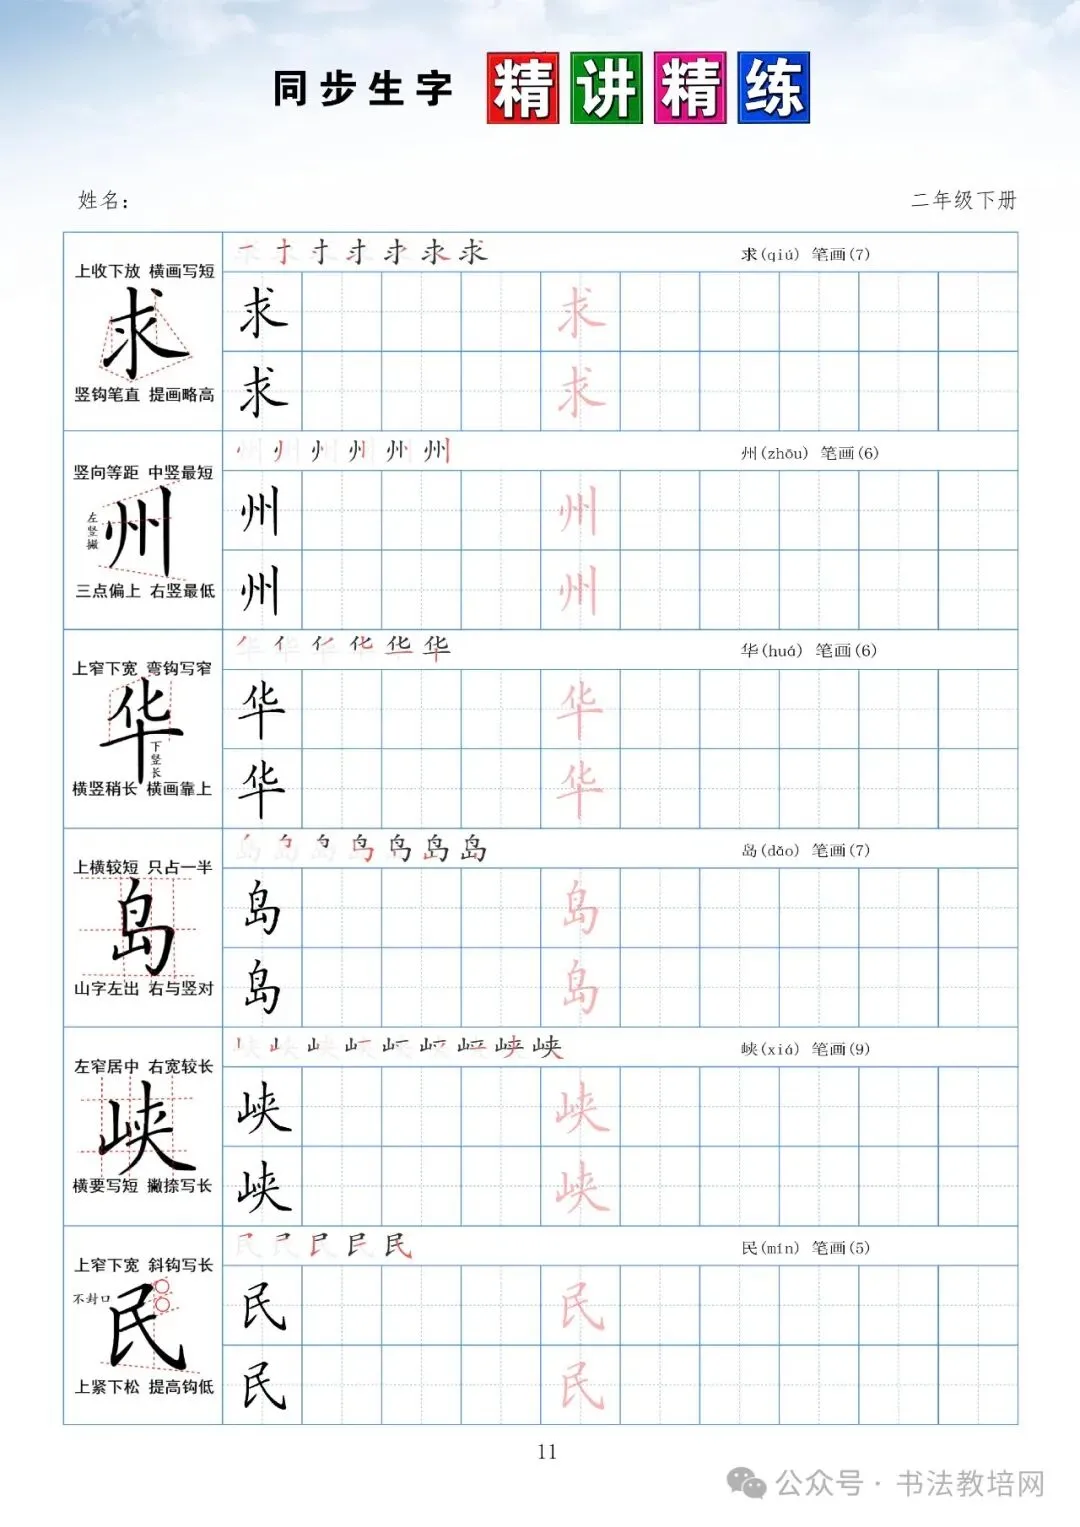 同步生字 精讲精练
姓名：
二年级下册
上收下放 横画写短
求
竖钩笔直 提画略高
求(qiú) 笔画(7)
求 求
求 求
竖向等距 中竖最短
左竖撇
州
三点偏上 右竖最低
州(zhōu) 笔画(6)
州 州
州 州
上窄下宽 弯钩写窄
华
下竖长
横竖稍长 横画靠上
华(huá) 笔画(6)
华 华
华 华
上横较短 只占一半
岛
山字左出 右与竖对
岛(dǎo) 笔画(7)
岛 岛
岛 岛
左窄居中 右宽较长
峡
横要写短 撇捺写长
峡(xiá) 笔画(9)
峡 峡
峡 峡
上窄下宽 斜钩写长
不封口
民
上紧下松 提高钩低
民(mín) 笔画(5)
民 民
民 民
11
公众号·书法教培网